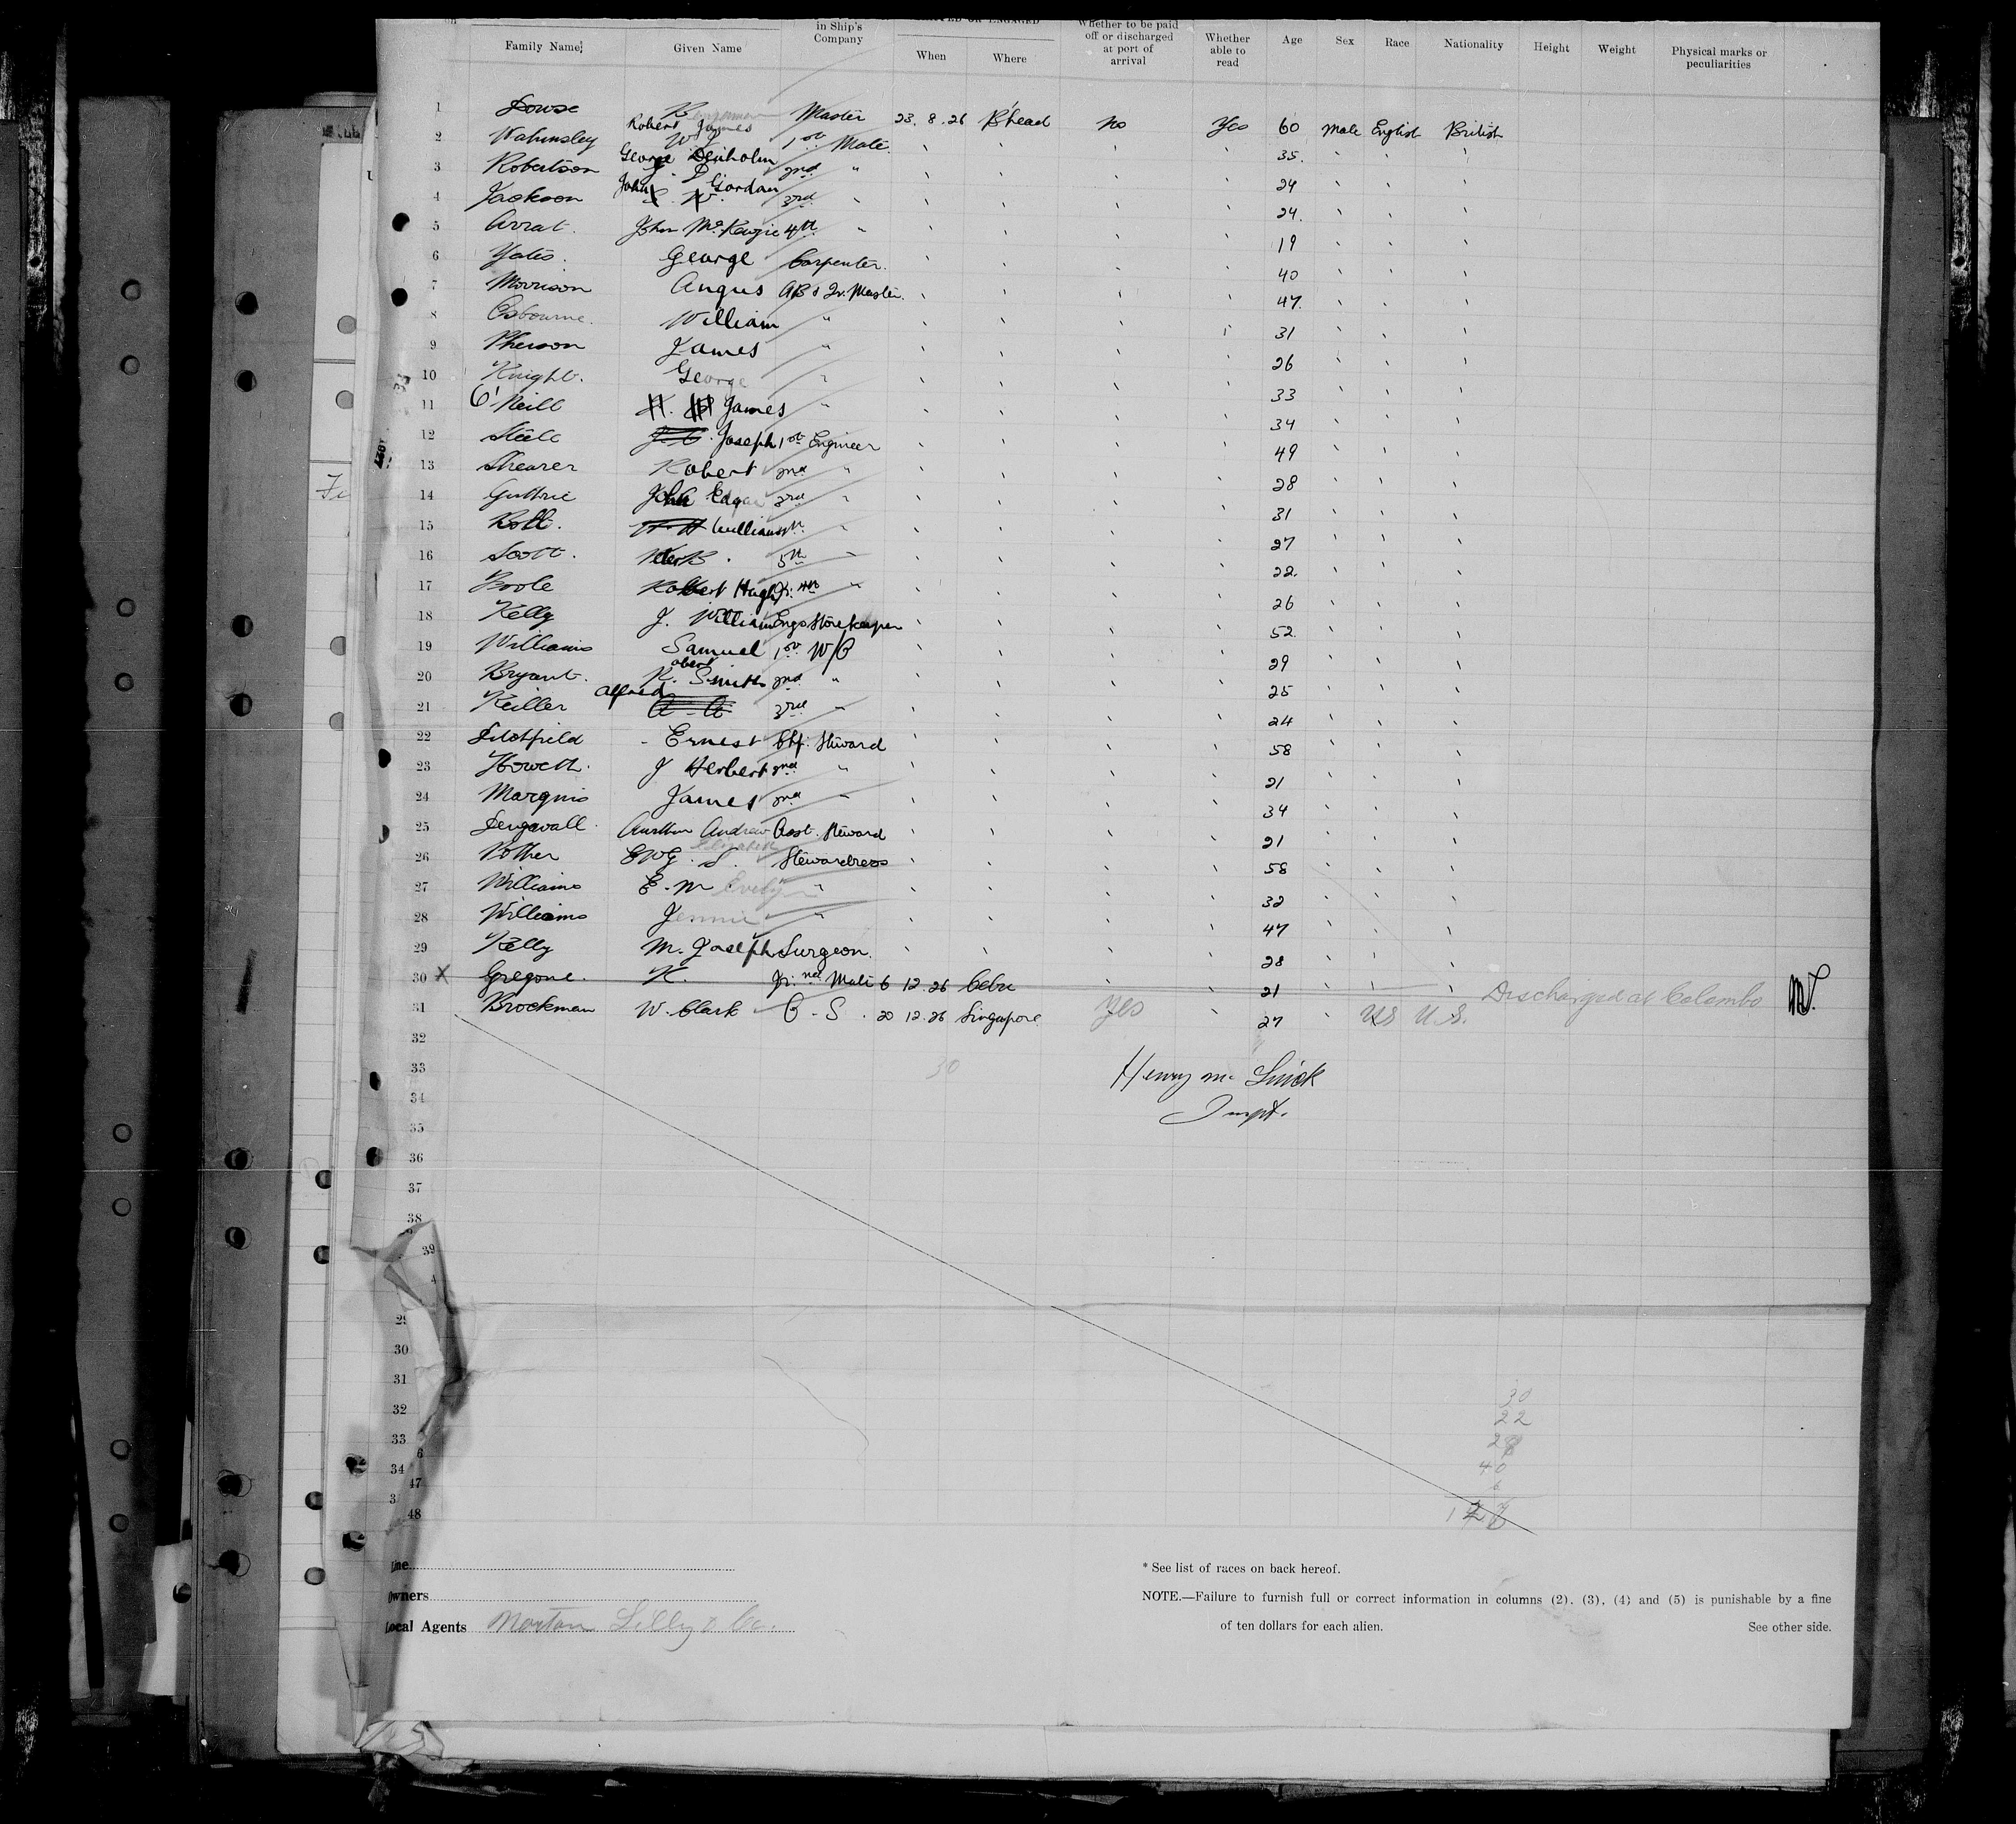 in Ship's Company Whether to be paid off or discharged at port of arrival Whether able to read
Family Name Given Name When Where Age Sex Race Nationality Height Weight Physical marks or peculiarities
1 Dowse Master 23.8.26 B'head No Yes 60 Male English British
2 Walmsley Robert James 1st Mate ' ' ' ' 35. ' ' '
3 Robertson George Denholm 2nd " ' ' ' ' 24 ' ' '
4 Jackson John Gordon 3rd " ' ' ' ' 24. ' ' '
5 Arrat. John McKenzie 4th " ' ' ' ' 19 ' ' '
6 Yates. George Carpenter. ' ' ' ' 40 ' ' '
7 Morrison Angus AB & Qr. Master. ' ' ' ' 47. ' ' '
8 Osbourne. William " ' ' ' ' 31 ' ' '
9 Pherson James " ' ' ' ' 26 ' ' '
10 Knight. George " ' ' ' ' 33 ' ' '
11 O'Neill James " ' ' ' ' 34 ' ' '
12 Steele Joseph 1st Engineer ' ' ' ' 49 ' ' '
13 Shearer Robert 2nd " ' ' ' ' 28 ' ' '
14 Guthrie John Edgar 3rd " ' ' ' ' 31 ' ' '
15 William 4th " ' ' ' ' 27 ' ' '
16 Scott. 5th " ' ' ' ' 22. ' ' '
17 Poole Robert Hugh Jr. 4th " ' ' ' ' 26 ' ' '
18 Kelly J. William Engs Storekeeper ' ' ' ' 52. ' ' '
19 Williams Samuel 1st W/O ' ' ' ' 29 ' ' '
20 Bryant. Robert Smith 2nd " ' ' ' ' 25 ' ' '
21 Keiller Alfred 3rd " ' ' ' ' 24 ' ' '
22 Ernest Chf. Steward ' ' ' ' 58 ' ' '
23 Howeth. J Herbert 2nd " ' ' ' ' 21 ' ' '
24 Marquis James 2nd " ' ' ' ' 34 ' ' '
25 Aurthur Andrew Asst. Steward ' ' ' ' 21 ' ' '
26 Pother Stewardress ' ' ' ' 58 ' ' '
27 Williams E. M Evelyn " ' ' ' ' 32 ' ' '
28 Williams Jennie " ' ' ' ' 47 ' ' '
29 Kelly M. Joseph Surgeon. ' ' ' ' 28 ' ' '
30 X Gregone. K. Jr. 2nd Mate 6 12.26 Cebu ' ' 21 ' ' ' Discharged at Colombo
31 Brockman W. Clark 20 12.26 Singapore Yes ' 27 ' US U.S.
32
33 30 Henry M.
34 Inspt.
35
36
37
38
39
4
29
30
31
32
33 6
34 47
3 48
30
22
40
6
Line
Owners
Local Agents Norton Lilly & Co.
* See list of races on back hereof.
NOTE.—Failure to furnish full or correct information in columns (2), (3), (4) and (5) is punishable by a fine
of ten dollars for each alien. See other side.